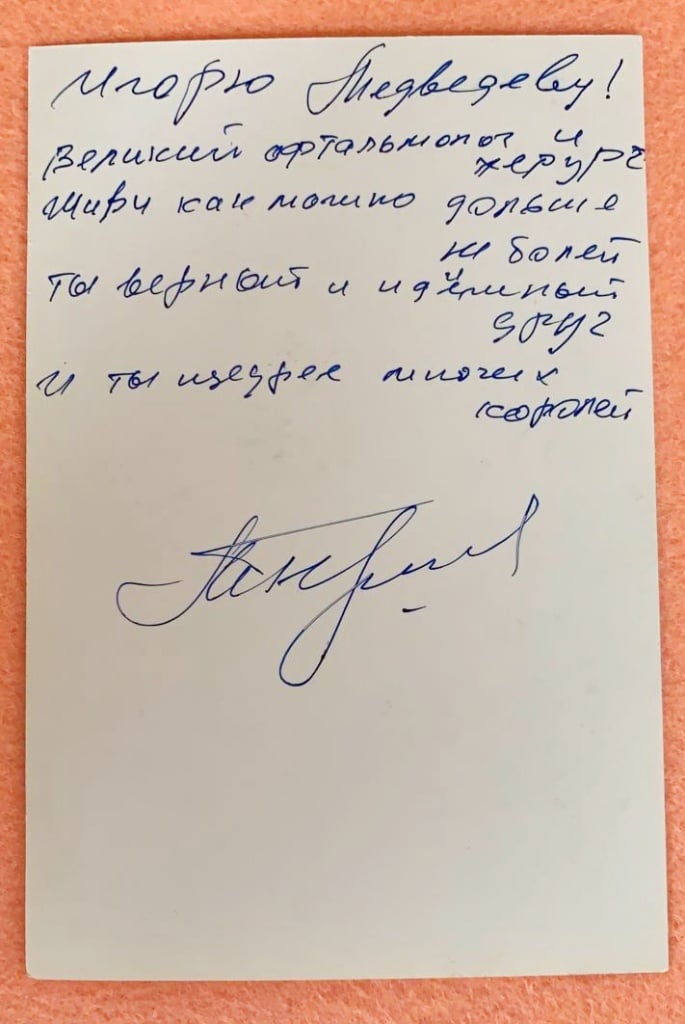 Игорю Медведеву!
Великий офтальмолог и
херург
Живи как можно дольше
не болей
ты верный и надёжный
друг
и ты щедрее многих
королей